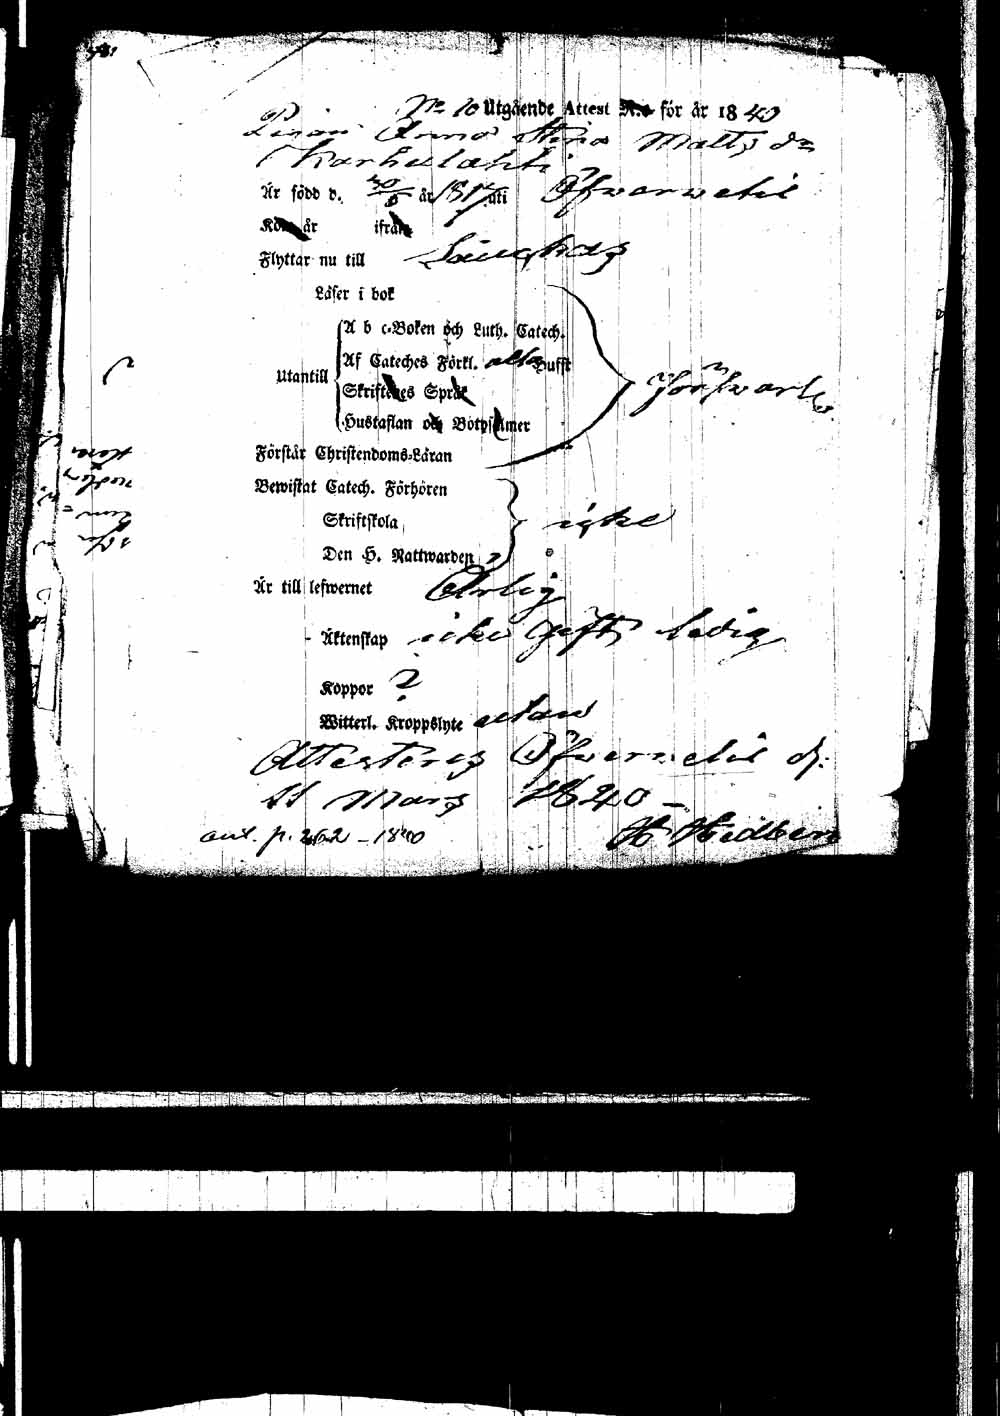 No 10 Utgående Attest N:o för år 1840
Pigan Anna Stina Matts dr
Karhulahti
Är född d. 30/6 år 181 uti Öfvervetil
Kom år ifrån
Flyttar nu till
Läser i bok
A b c-Boken och Luth. Catech.
Af Cateches Förkl. alla Hufst
Utantill
Skriftenes Språk
Hustaflan och Botpsalmer
försvarl.
Förstår Christendoms-Läran
Bewistat Catech. Förhören
Skriftskola
icke
Den H. Nattwarden
Är till lefwernet Ärlig
Äktenskap icke gift, ledig
Koppor ?
Witterl. Kroppslyte utan
Attesteras Öfvervetil d.
11 Mars 1840 -
ant. p. 262 - 1840